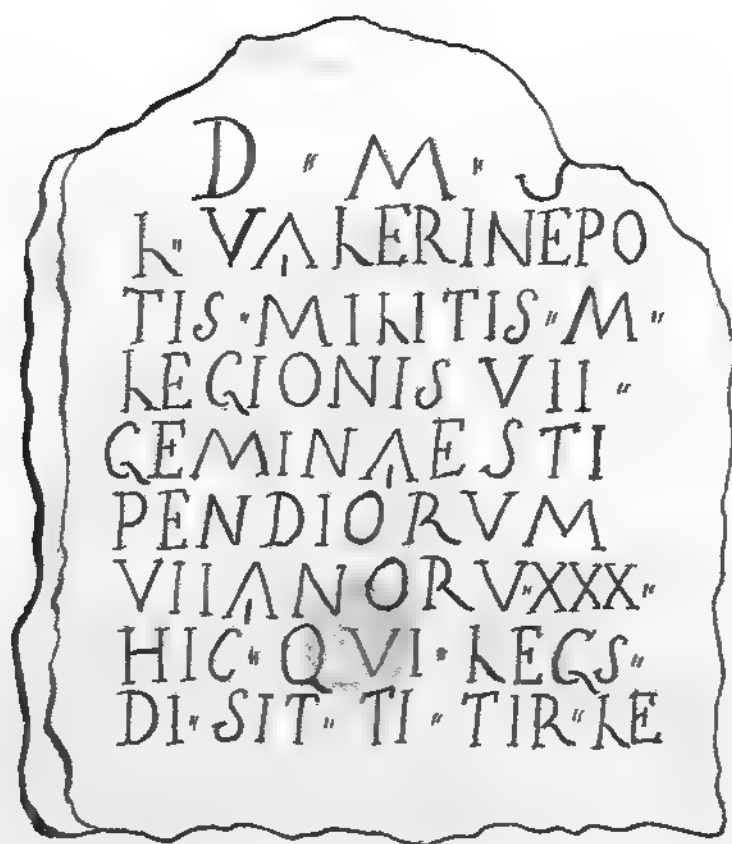 D " M " S
L " VALERI NEPO
TIS " MILITIS " M "
LEGIONIS VII "
GEMINAE STI
PENDIORVM
VII ANORV " XXX "
HIC " QVI " LEGS "
DI " SIT " TI " TIR " LE